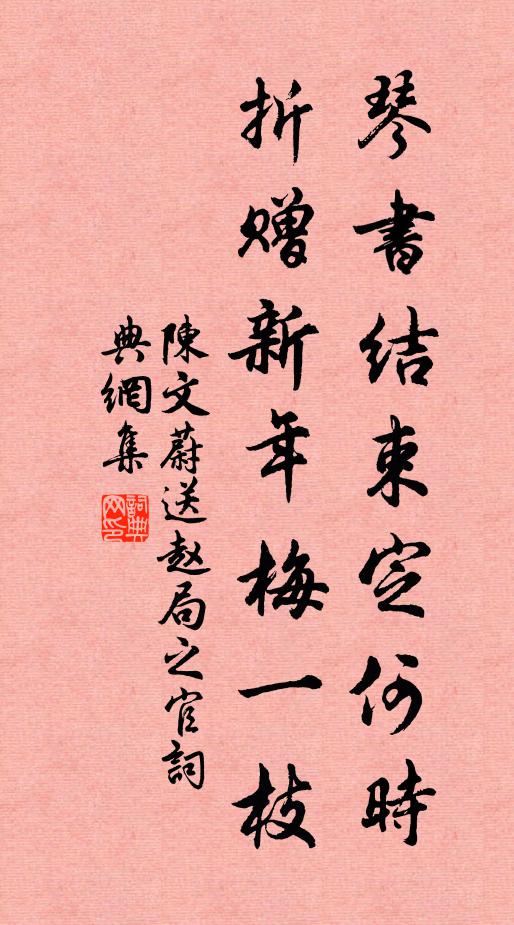 琴書結束定何時
折贈新年梅一枝
陳文蔚送趙局之官詞
典網集
詞典
网印